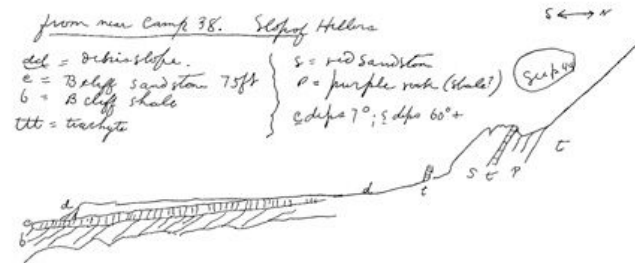 from near Camp 38. Slope of Hillers
S ⟷ N
dd = debris slope.
c = B cliff sandstone 75ft
b = B cliff shale
ttt = trachyte
s = red sandston
p = purple rock (shale?)
c dips 7°; s dips 60°+
See p 44
d
c
b
d
t
S t P
t